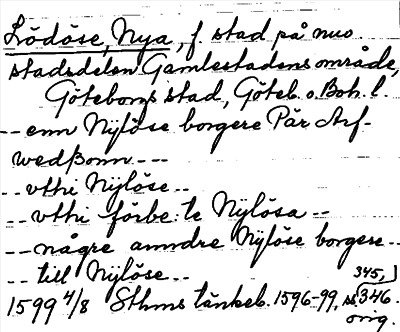 Lödöse, Nya, f. stad på nuv.
stadsdelen Gamlestadens område,
Göteborgs stad, Göteb. o. Boh. l.
-- enn Nÿlöse borgere Pär Arf-
wedßonn ---
-- vthi Nÿlöse --
-- vthi förbe:te Nÿlösa --
-- någre anndre Nÿlöse borgere --
-- till Nÿlöse --
1599 4/8 Sthms tänkeb. 1596-99, s. 345, 346.
orig.